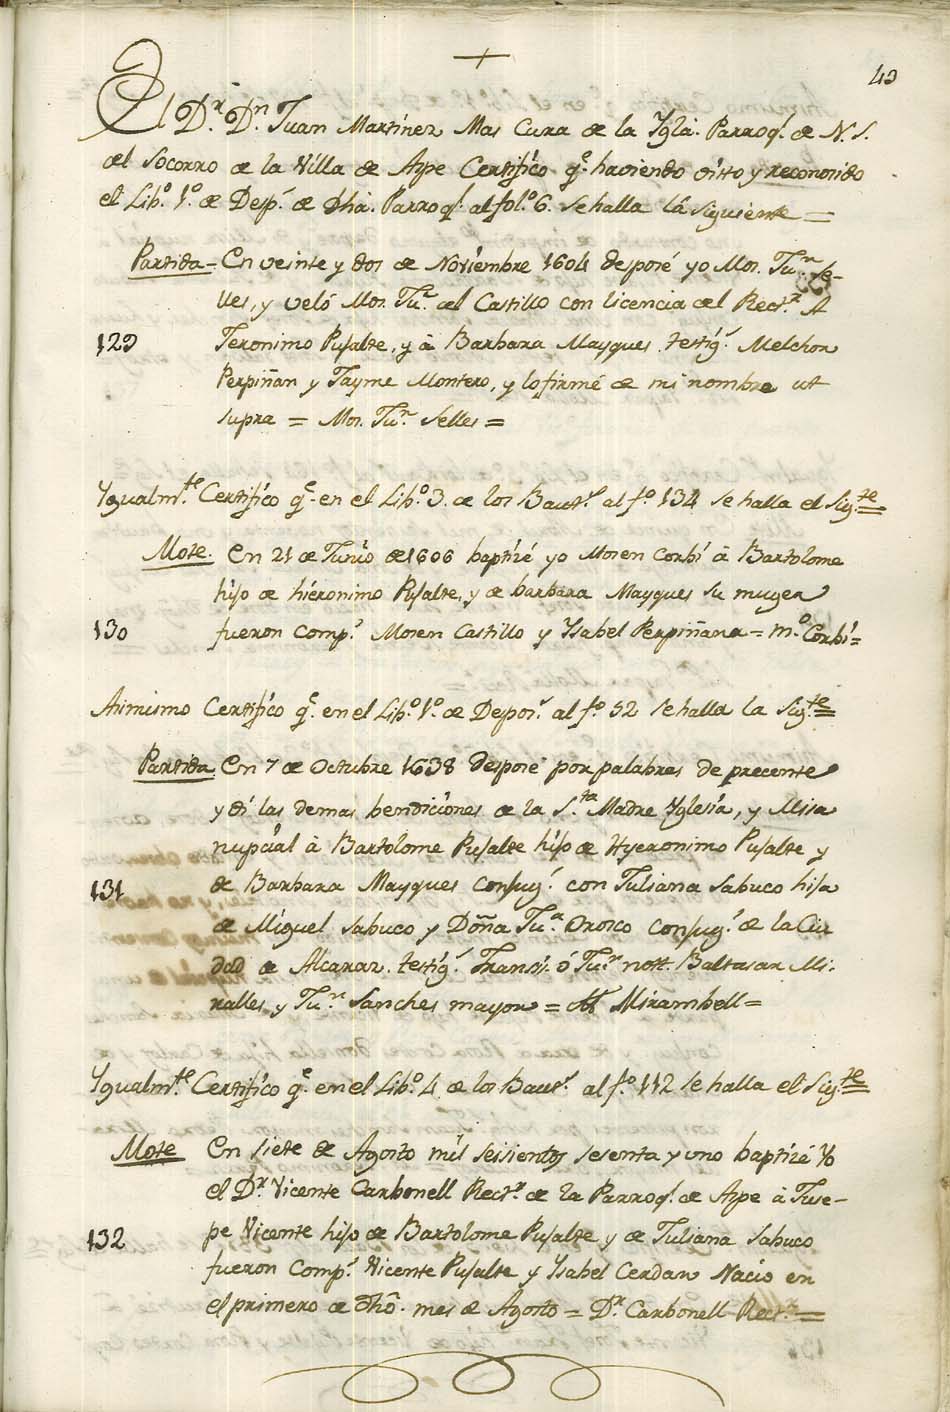 +
40
El D.r D.n Juan Martinez Mas Cura de la Ygla. Parroq.l de N. S.
del Socorro de la Villa de Aspe Certifico q.e haviendo visto y reconosido
el Lib.o 1.o de Desp.s de dha. Parroq.l al fol.o 6. se halla la siguiente =
Partida = En veinte y dos de Noviembre 1604 desposé yo Mos. Ju.n Se-
lles, y veló Mos. Ju.n del Castillo con licencia del Rect.r A
129 Jeronimo Pujalte, y à Barbara Mayques. testig.s Melchor
Perpiñan y Jayme Montero, y lo firmé de mi nombre ut
supra = Mos. Ju.n Selles =
Ygualm.te Certifico q.e en el Lib.o 3. de los Baut.s al f.o 134 se halla el Sig.te =
Mote. En 21 de Junio de 1606 baptizé yo Mosen Corbi à Bartolome
hijo de hieronimo Pujalte, y de barbara Mayques su muger
130 fueron Comp.s Mosen Castillo y Ysabel Perpiñana = M.o Corbi =
Asimismo Certifico q.e en el Lib.o 1.o de Despos.s al f.o 52 se halla la Sig.te =
Partida En 7 de Octubre 1638 desposé por palabres de precente
y di las demas bendiciones de la S.ta Madre Yglesia, y Missa
nupcial à Bartolome Pujalte hijo de Hyeronimo Pujalte y
131 de Barbara Mayques Conjug.s con Juliana Sabuco hija
de Miguel Sabuco y Doña Ju.a Orosco Conjug.s de la Ciu
dad de Alcaraz. testig.s Fransi. ó Ju.n nott. Baltasar Mi-
ralles y Ju.n Sanches mayor = Mirambell =
Ygualm.te Certifico q.e en el Lib.o 4. de los Baut.s al f.o 112 se halla el Sig.te =
Mote En siete de Agosto mil seisientos sesenta y uno baptizé Yo
el D.r Vicente Carbonell Rect.r de la Parroq.l de Aspe à Juse-
132 pe Vicente hijo de Bartolome Pujalte y de Juliana Sabuco
fueron Comp.s Vicente Pujalte y Ysabel Cerdan Nacio en
el primero de dho. mes de Agosto = D.r Carbonell Rect.r =